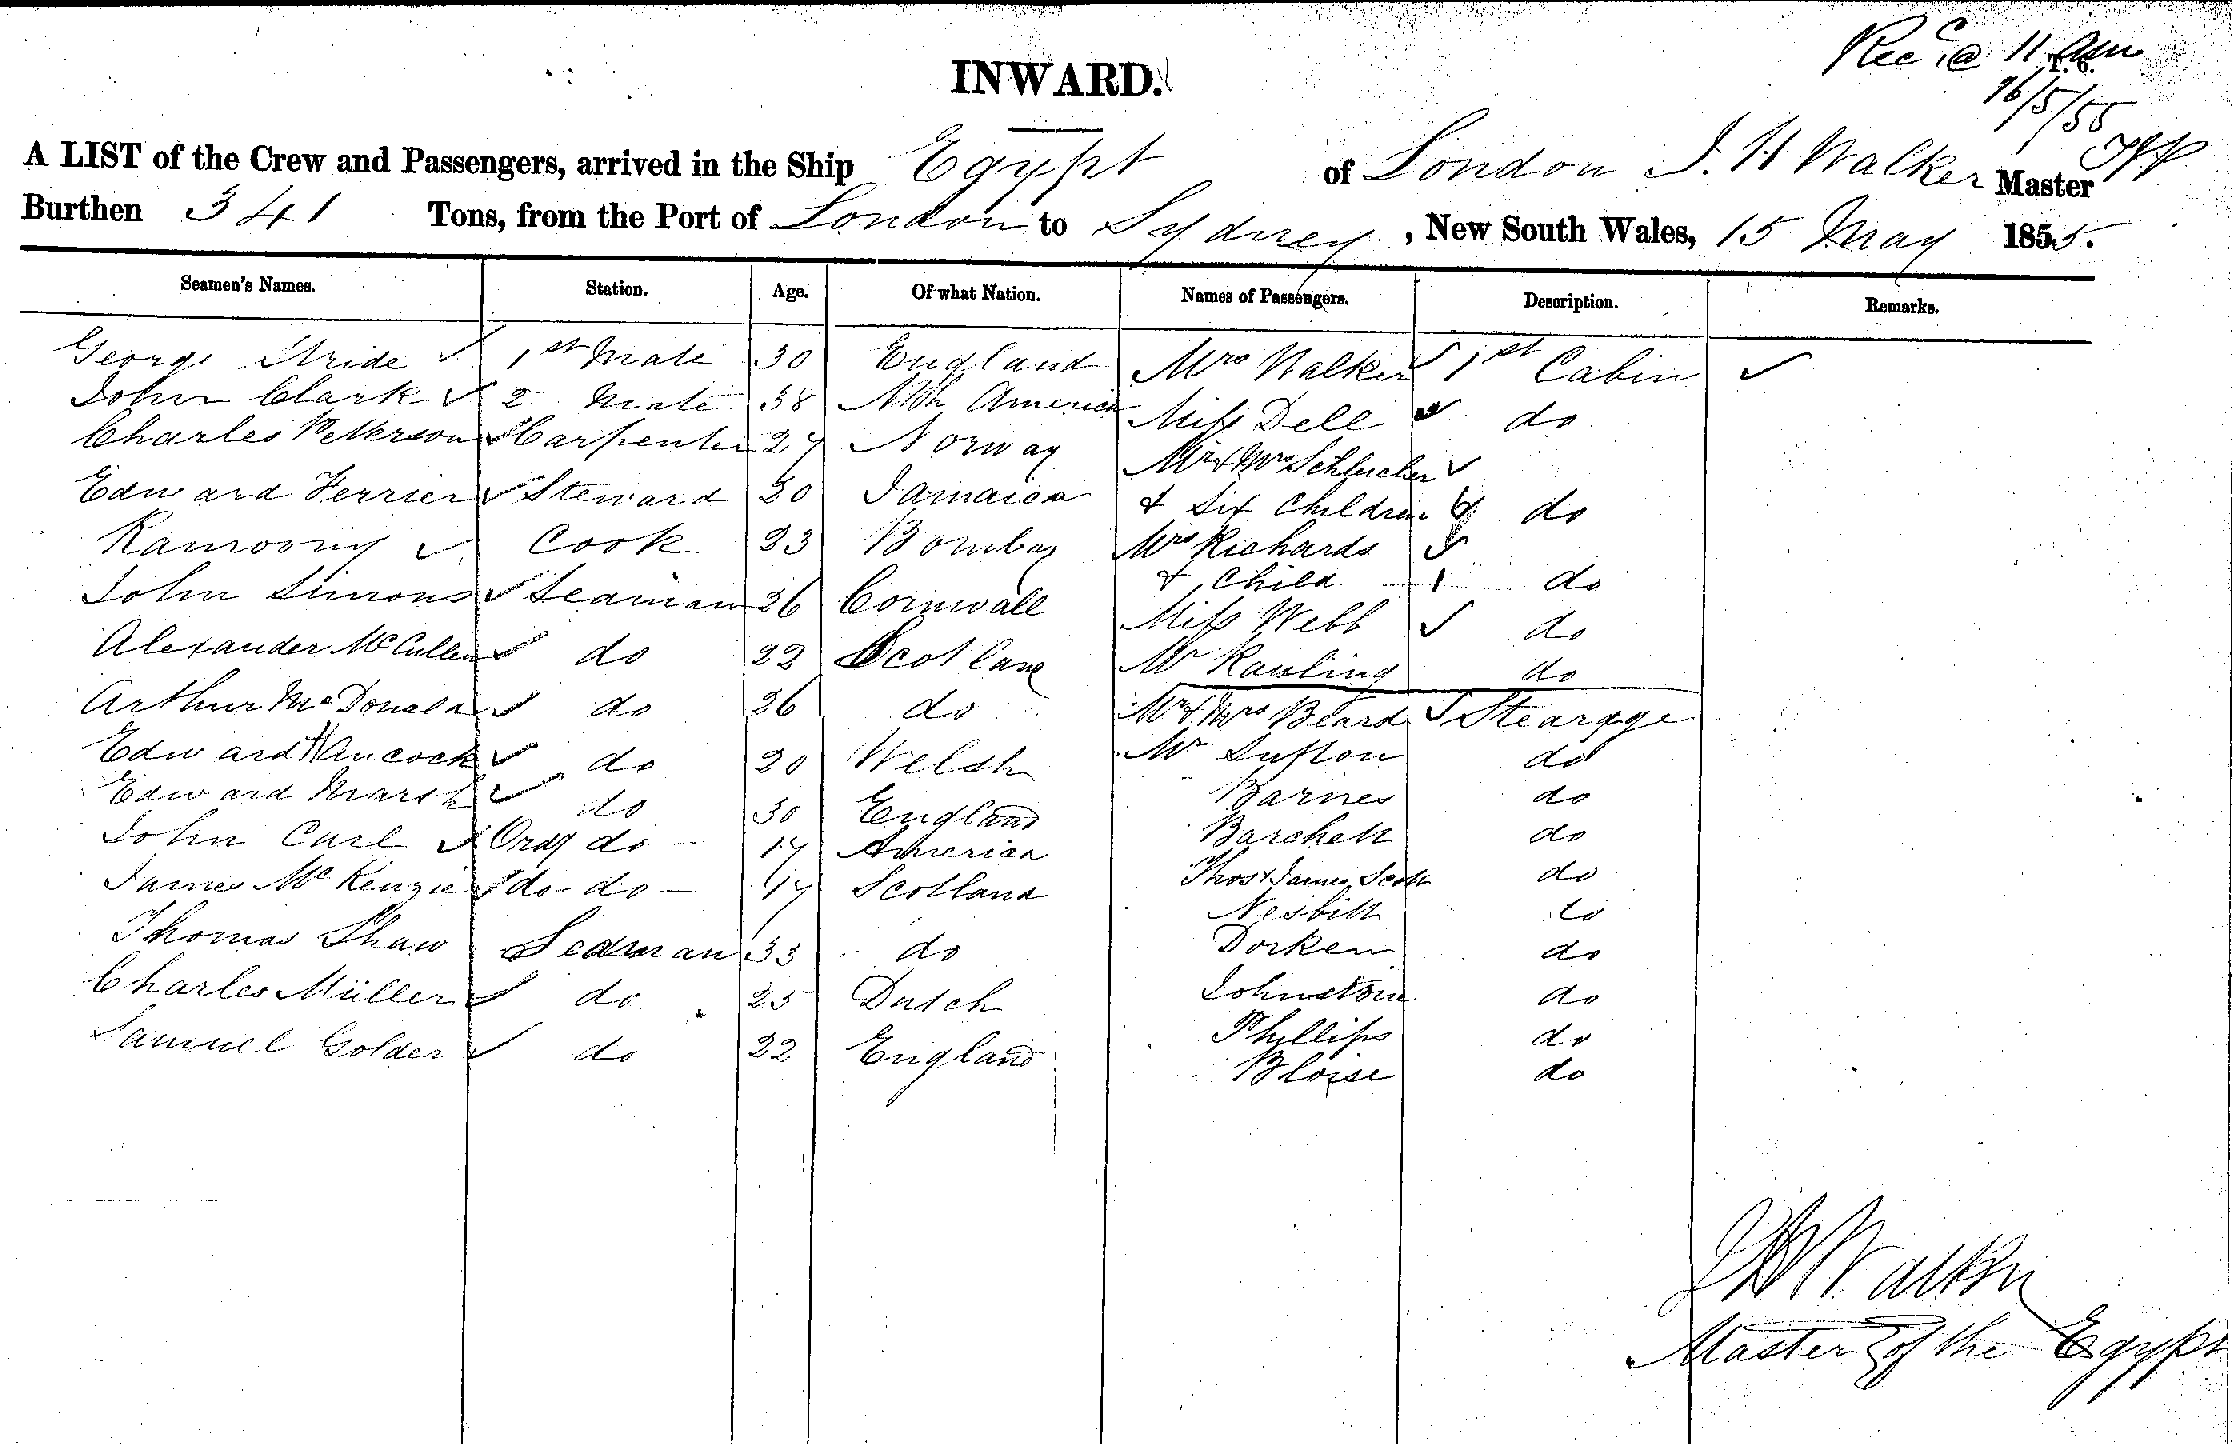 Recd @ 11 am
16/5/55
INWARD.
A LIST of the Crew and Passengers, arrived in the Ship Egypt of London J. H Walker Master
Burthen 341 Tons, from the Port of London to Sydney, New South Wales, 15 May 1855.
Seamen's Names. Station. Age. Of what Nation. Names of Passengers. Description. Remarks.
George Stride ✓ 1st Mate 30 England Mrs Walker ✓ 1st Cabin ✓
John Clark ✓ 2 Mate 38 Nth America Miss Dell ✓ do
Charles Petterson ✓ Carpenter 27 Norway Mr & Mrs ✓
Edward Ferrier ✓ Steward 30 Jamaica & Six Children 6 do
✓ Cook 33 Bombay Mrs Richards ✓
& Child 1 do
John Simons ✓ Seaman 26 Cornwall Miss Webb ✓ do
Alexander McCullen ✓ do 22 Scotland Mr Rawling do
Arthur McDonald ✓ do 26 do Mr & Mrs Beard ✓ Stearage
Edward Hancock ✓ do 20 Welsh Mr Sutton do
Edward Marsh ✓ do 30 England Barnes do
John Carl ✓ Ordy do 17 America Barchett do
James McKenzie ✓ do do 17 Scotland Thos & James Scott do
Nesbitt do
Thomas Shaw Seaman 33 do Dorken do
Charles Müller ✓ do 25 Dutch Johnstone do
Samuel Golder ✓ do 22 England Phyllips do
Bloise do
JH Walker
Master of the Egypt